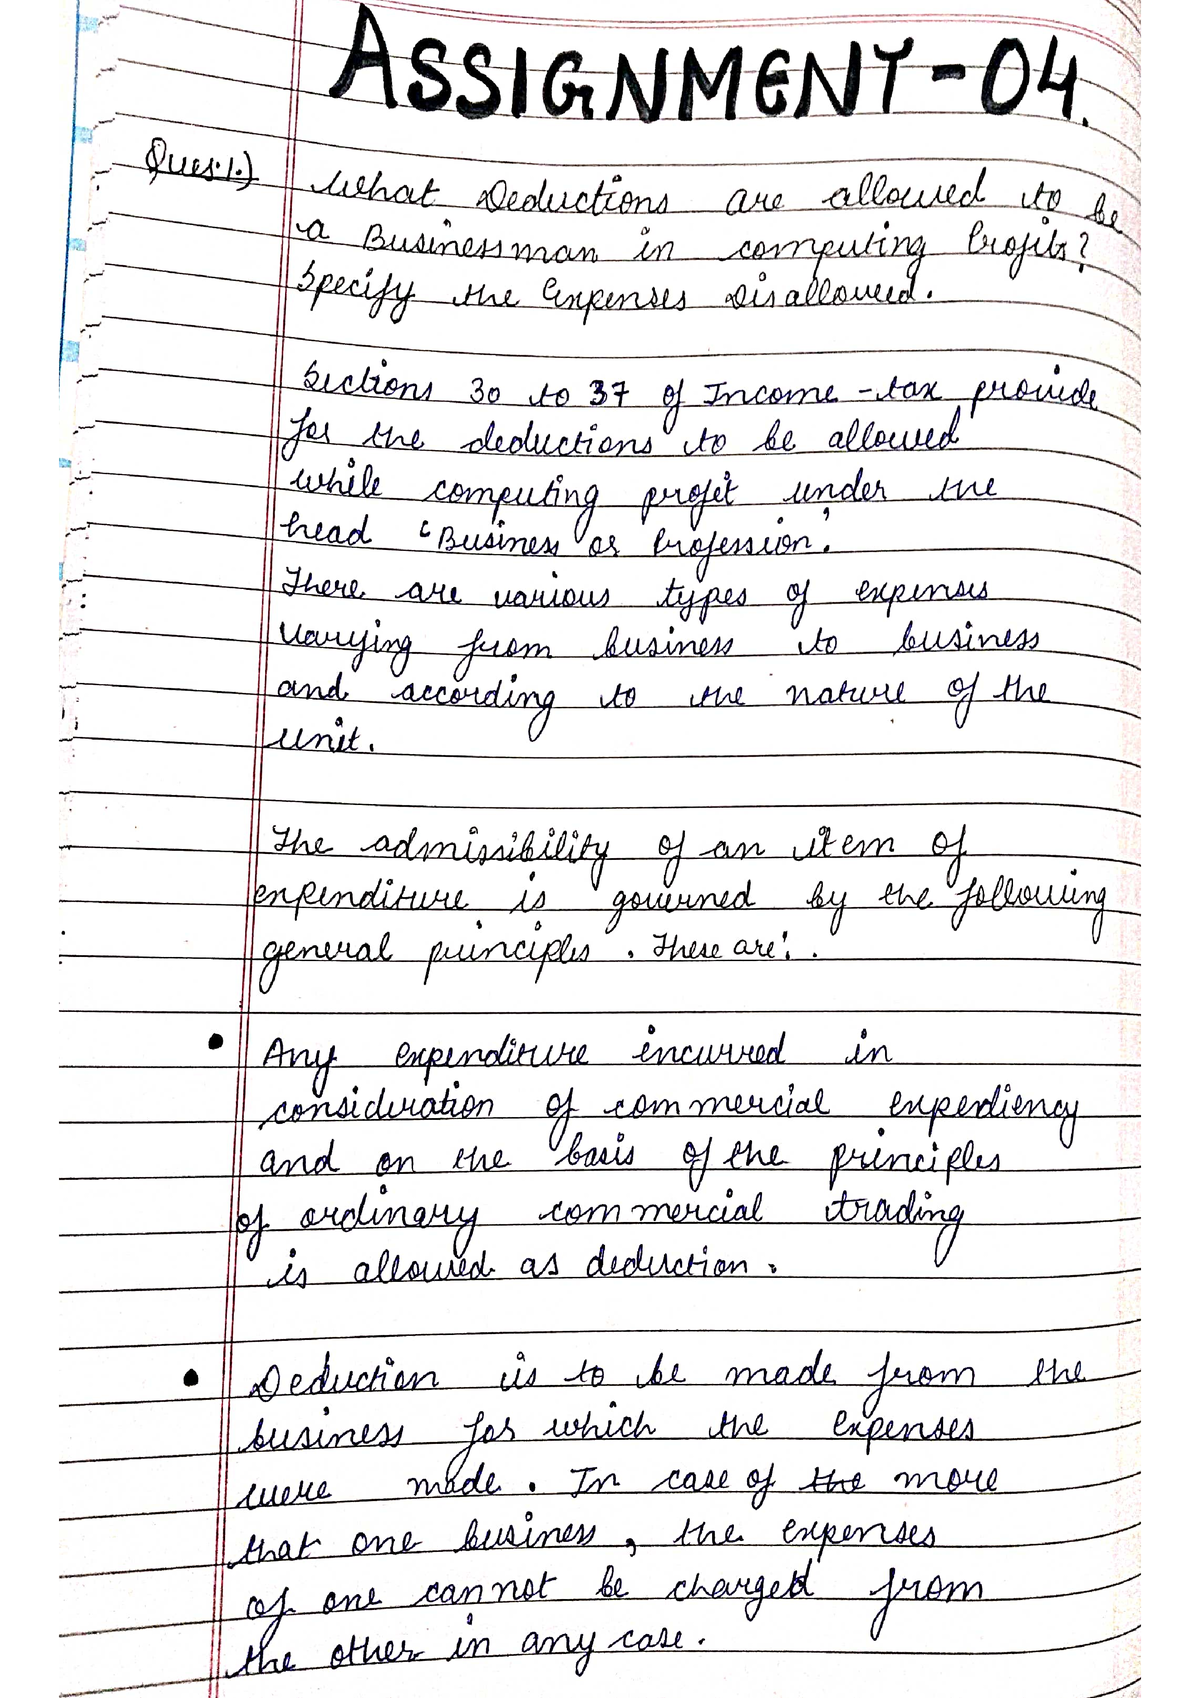 ASSIGNMENT-04.
Ques.1.) What Deductions are allowed to be
a Businessman in computing Profits?
Specify the Expenses Disallowed.
Sections 30 to 37 of Income-tax provide
for the deductions to be allowed
while computing profit under the
head 'Business or Profession'.
There are various types of expenses
varying from business to business
and according to the nature of the
unit.
The admissibility of an item of
expenditure is governed by the following
general principles. These are:.
• Any expenditure incurred in
consideration of commercial expendiency
and on the basis of the principles
of ordinary commercial trading
is allowed as deduction.
• Deduction is to be made from the
business for which the expenses
were made. In case of the more
that one business, the expenses
of one cannot be charged from
the other in any case.